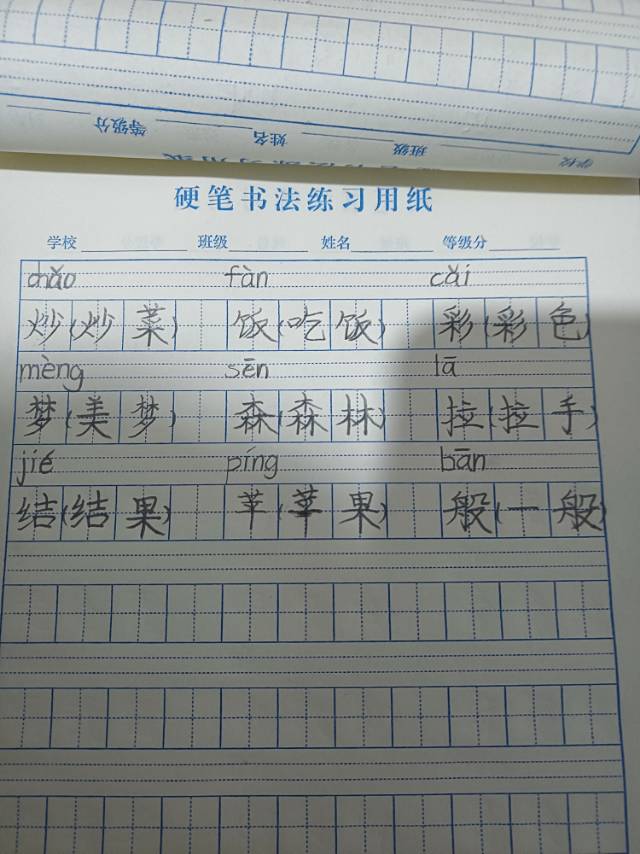 学校 班级 姓名 等级分
硬笔书法练习用纸
学校 班级 姓名 等级分
chǎo fàn cǎi
炒(炒菜) 饭(吃饭) 彩(彩色)
mèng sēn lā
梦(美梦) 森(森林) 拉(拉手)
jié píng bān
结(结果) 苹(苹果) 般(一般)